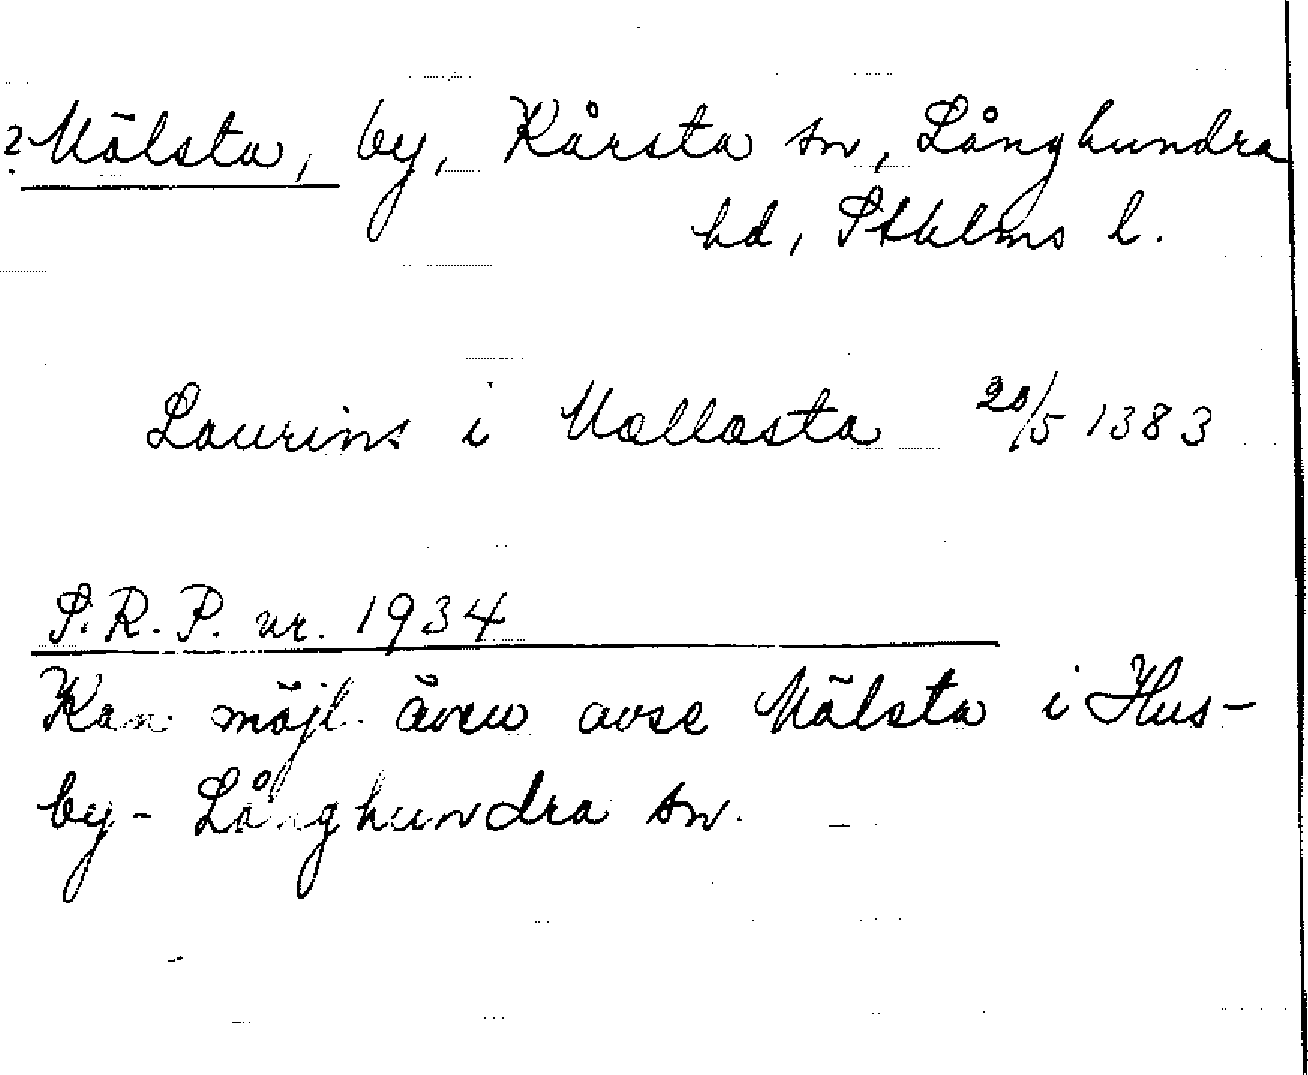 ? Mälsta, by, Kårsta sn, Långhundra
hd, Sthlms l.
Laurins i Mællæsta 20/5 1383
S.R.P. nr. 1934
Kan möjl. även avse Mälsta i Hus-
by-Långhundra sn.